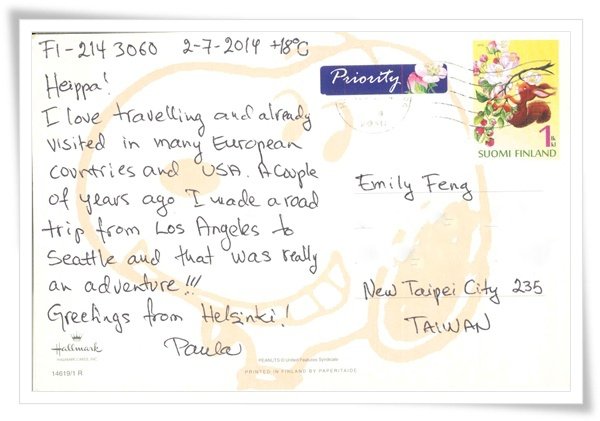 FI-214 3060 2-7-2014 +18°C
Heippa!
I love travelling and already
visited in many European
countries and USA. A couple
of years ago I made a road
trip from Los Angeles to
Seattle and that was really
an adventure!!!
Greetings from Helsinki!
Paula
Hallmark
HALLMARK CARDS, INC.
14619/1 R.
PEANUTS © United Features Syndicate
PRINTED IN FINLAND BY PAPERITAIDE
Priority
1 lk kl
SUOMI FINLAND
Emily Feng
New Taipei City 235
TAIWAN